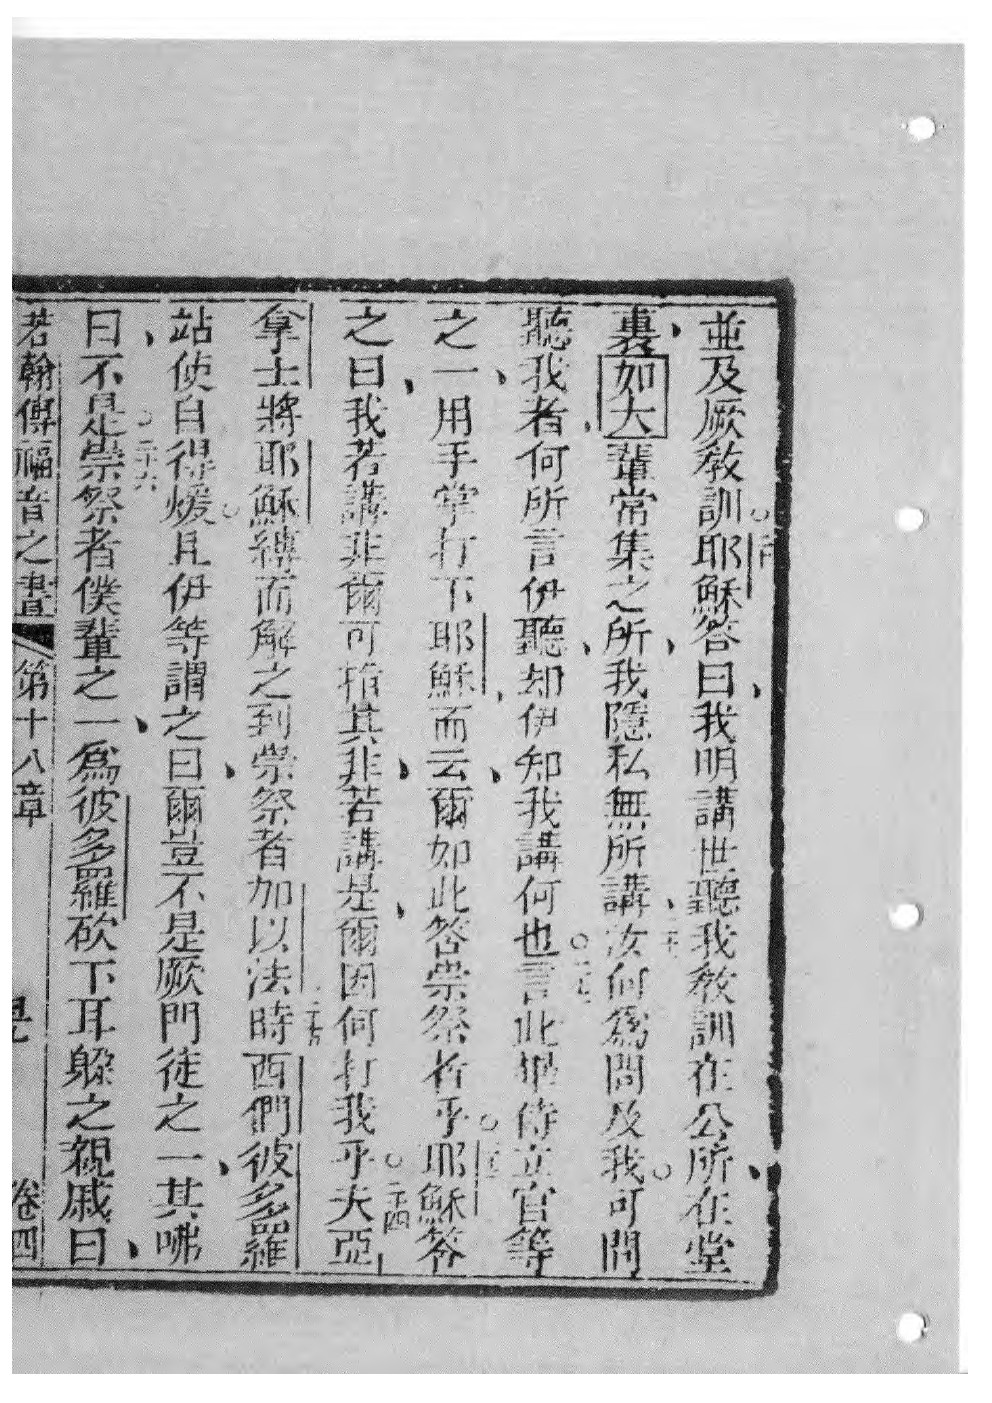 並及厥教訓耶穌答曰我明講世聽我教訓在公所在堂
裏如大輩常集之所我隱私無所講汝何爲問及我可問
聽我者何所言伊聽却伊知我講何也二十二言此畢侍立官等
之一用手掌打下耶穌而云爾如此答崇祭者乎耶穌答
之曰我若講非爾可指其非若講是爾因何打我乎二十四夫亞
拿士將耶穌縛而解之到崇祭者加以法時二十五西們彼多羅
站使自得煖且伊等謂之曰爾豈不是厥門徒之一其咈
曰不是二十六崇祭者僕輩之一爲彼多羅砍下耳躲之親戚曰
若翰傳福音之書 第十八章 卷四